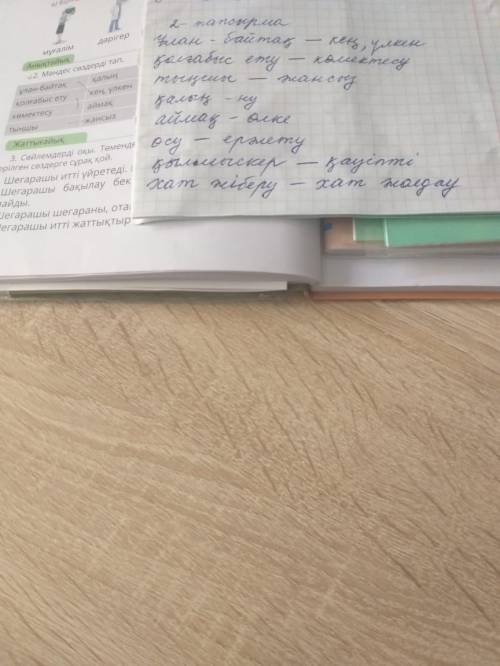 мұғалім
дәрігер
Анықтайық
2. Мәндес сөздерді тап.
ұлан-байтақ
қалың
қолғабыс ету
кең, үлкен
көмектесу
аймақ
тыңшы
жансыз
Жаттығайық
3. Сөйлемдерді оқы. Төменде
берілген сөздерге сұрақ қой.
Шегарашы итті үйретеді.
Шегарашы бақылау бек
Шегарашы шегараны, отан
Шегарашы итті жаттықтыр
2- тапсырма
Ұлан - байтақ — кең, үлкен
қолғабыс ету — көмектесу
тыңшы — жансыз
қалың - ну
аймақ - өлке
өсу — ержету
қылмыскер — қауіпті
хат жіберу — хат жолдау